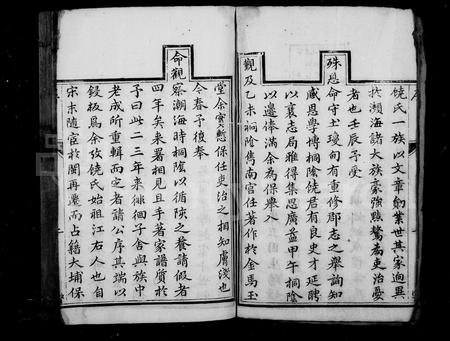 饒氏一族以文章勛業世其家迥異
於瀕海諸大族豪強點鶩為吏治憂
者也壬辰予受
殊恩命守士瓊甸有重修郡志之舉詢知
感恩學博桐陰饒君有良吏才延聘
以襄志局雅得集思廣益甲午桐陰
以邊俸滿余為保舉入
觀及乙未桐陰雋南宮任著作於金馬玉
堂余實慙保任吏治之相知膚淺也
今春予復奉
命觀察潮海時桐陰以循陔之養請假者
四年矣來署相見且手著家譜質於
予曰此二三年來徘徊子舍與族中
老成所重輯而定者請公序其端以
鋟板焉余攷饒氏始祖江右人也自
宋末隨宦於閩再遷而占籍大埔保